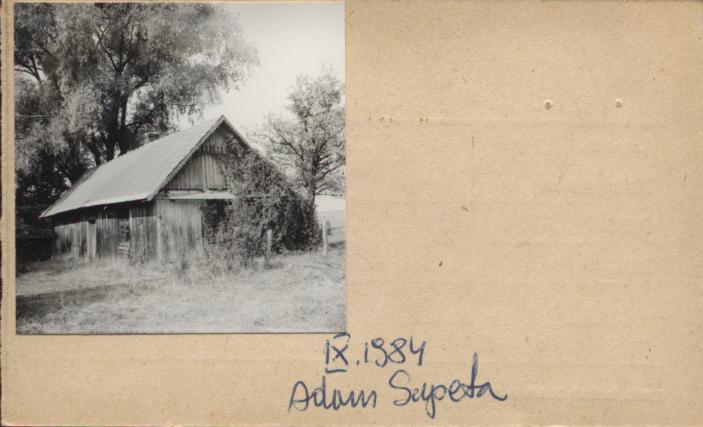 IX.1984
Adam Sapeta